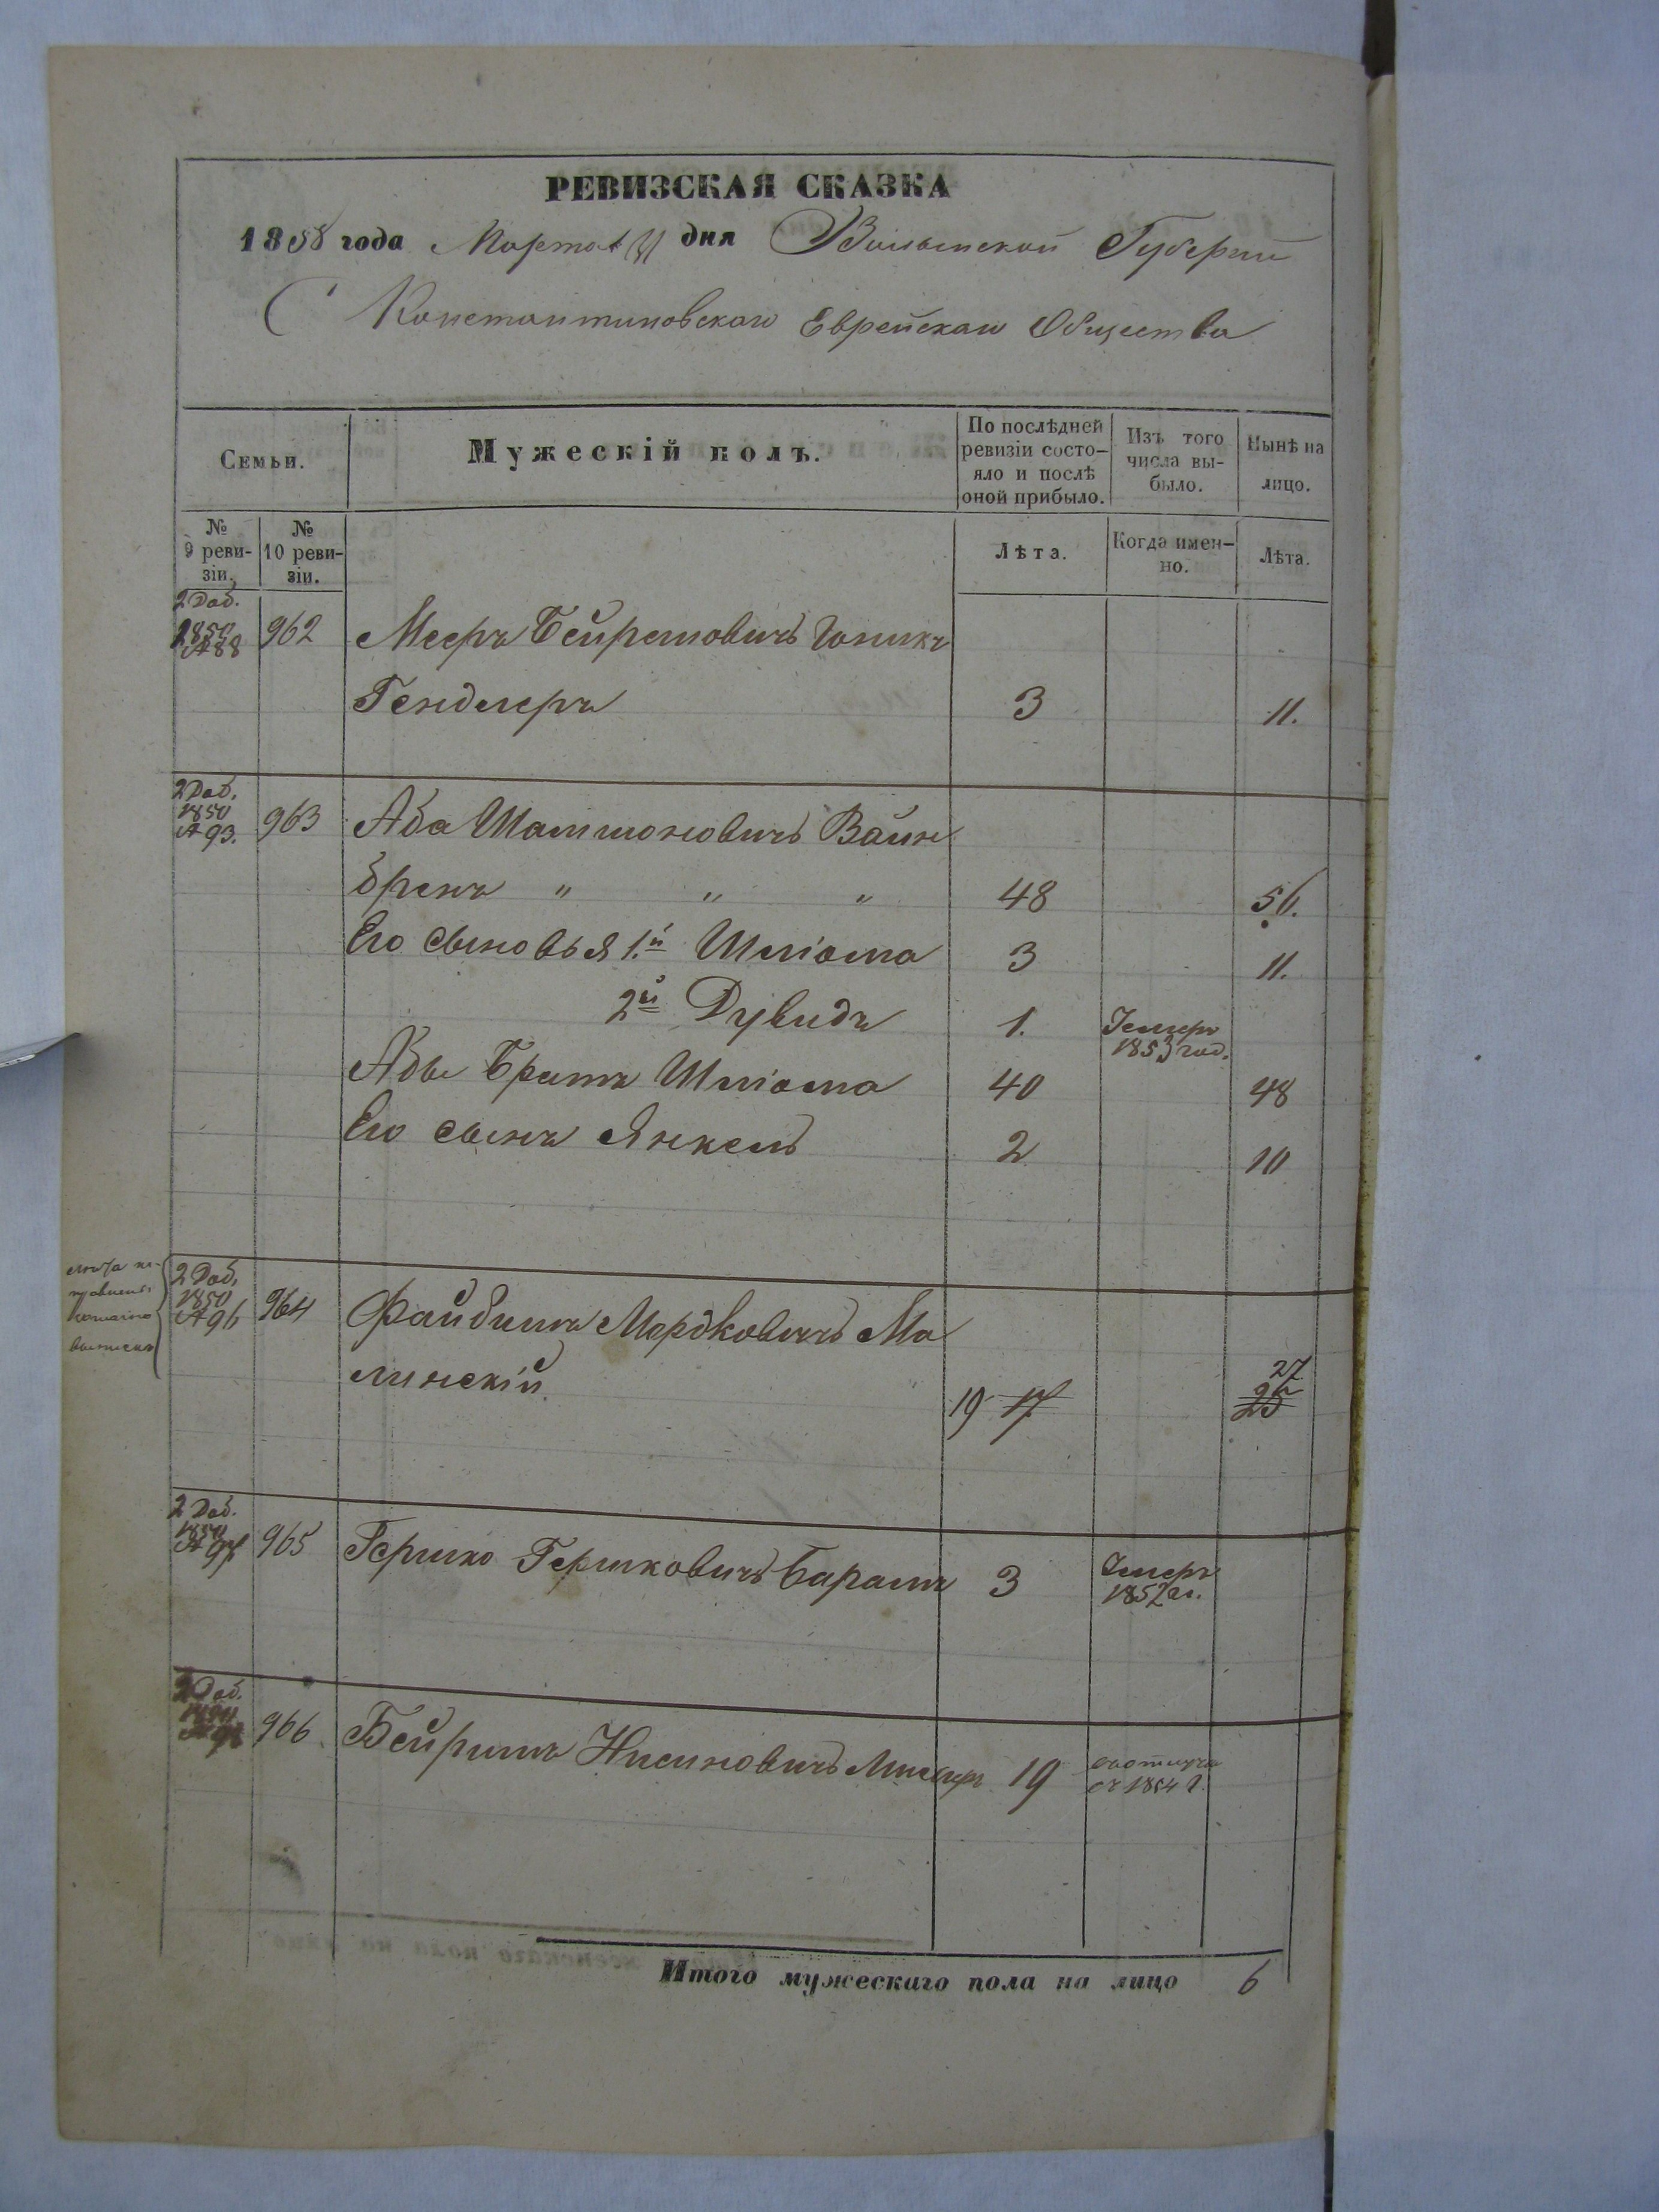 РЕВИЗСКАЯ СКАЗКА
1858 года Марта дня Волынской Губернии
С Константиновскаго Еврейскаго Общества
Семьи.
Мужескій полъ.
По послѣдней ревизіи состо-
яло и послѣ
оной прибыло.
Изъ того
числа вы-
было.
Нынѣ на
лицо.
№
9 реви-
зіи.
№
10 реви-
зіи.
Лѣта.
Когда имен-
но.
Лѣта.
2 Доб.
1850
№ 88
962
Меер
Гендлеръ
3
11.
2 Доб.
1850
№ 93.
963
Аба Шамшоновичъ Вайн
бренъ " " "
48
56.
Его сыновья 1.й Шліома
3
11.
2й Дувидъ
1.
Умеръ
1853 год.
Абы Братъ Шліома
40
48
Его сынъ Янкель
2
10
2 Доб.
1850
№ 96
964
Файбишъ Мордковичъ Ма
линскій.
19 17
27
25
2 Доб.
1850
№ 97
965
Гершко Гершковичъ Барамъ
3
Умеръ
1852 г.
2 Доб.
1850
966
Бейришъ Нисиновичъ
19
съ 1854 г.
Итого мужескаго пола на лицо 6